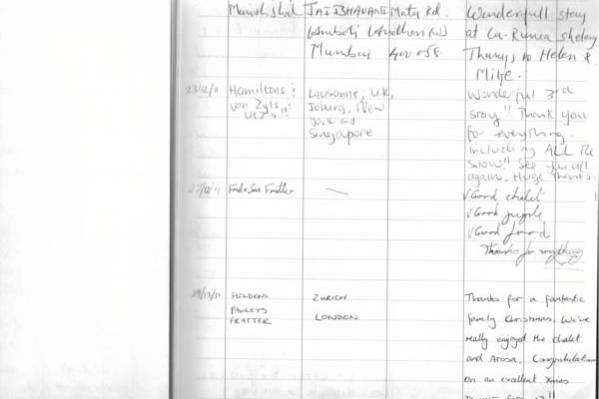 Manish Shil JAI BHAVANI Mata Rd. Wonderfull stay
Amboli Andheri (W) at La-Runca
Mumbai 400 058. to Helen &
Mike.
23/12/11 Hamiltons: Lausanne, UK, Wonderful 3rd
von Zyls!! Joburg, New stay!! Thank you
York and for everything.
Singapore Including ALL the
snow!! See you all
again. Huge thanks.
27/12/11 — V Good chalet
V Good people
V Good food
Thanks for everything
29/12/11 ZURICH Thanks for a fantastic
LONDON family Christmas. We've
FRATTER really enjoyed the chalet
and Arosa. Congratulations
on an excellent xmas